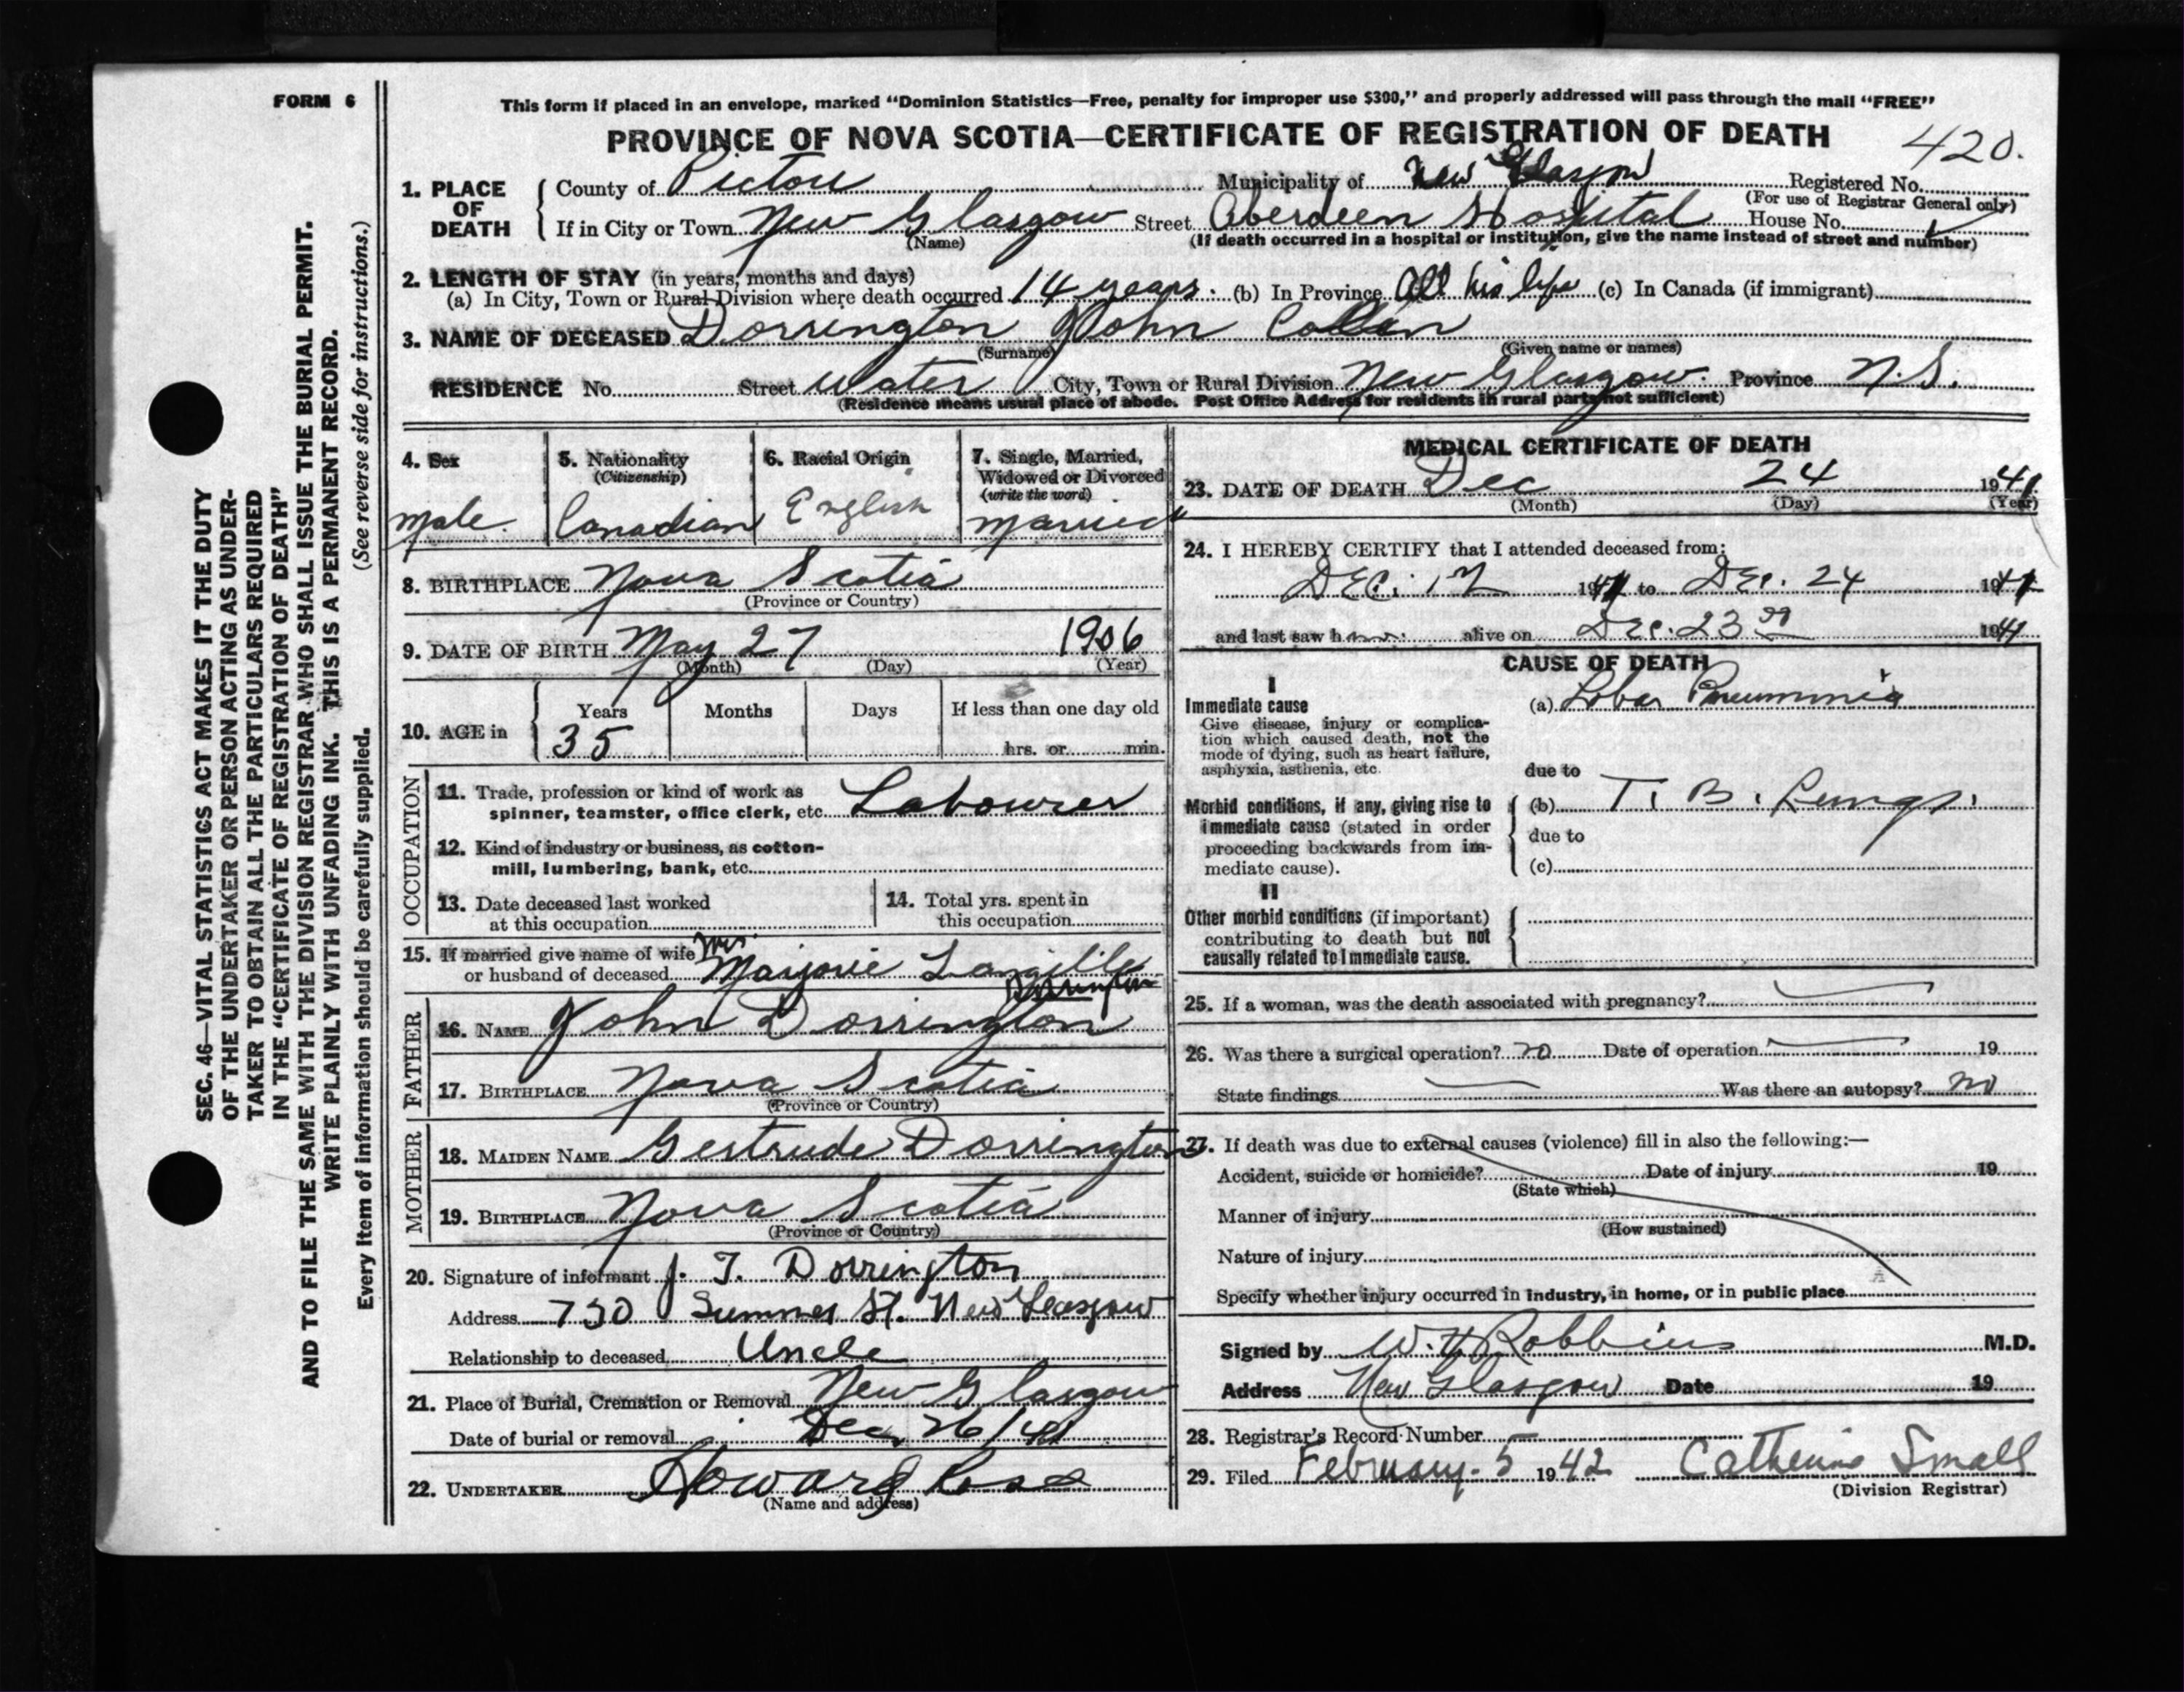 FORM 6
This form if placed in an envelope, marked "Dominion Statistics—Free, penalty for improper use $300," and properly addressed will pass through the mail "FREE"
PROVINCE OF NOVA SCOTIA—CERTIFICATE OF REGISTRATION OF DEATH
420.
1. PLACE OF DEATH
County of Pictou Municipality of New Glasgow Registered No.
(For use of Registrar General only)
If in City or Town New Glasgow Street Aberdeen Hospital House No.
(Name) (If death occurred in a hospital or institution, give the name instead of street and number)
2. LENGTH OF STAY (in years, months and days)
(a) In City, Town or Rural Division where death occurred 14 years. (b) In Province All his life (c) In Canada (if immigrant)
3. NAME OF DECEASED Dorrington John Collin
(Surname) (Given name or names)
RESIDENCE No. Street Water City, Town or Rural Division New Glasgow. Province N.S.
(Residence means usual place of abode. Post Office Address for residents in rural parts not sufficient)
4. Sex
Male.
5. Nationality
(Citizenship)
Canadian
6. Racial Origin
English
7. Single, Married,
Widowed or Divorced
(write the word)
Married
8. BIRTHPLACE Nova Scotia
(Province or Country)
9. DATE OF BIRTH May 27 1906
(Month) (Day) (Year)
10. AGE in
Years Months Days If less than one day old
35 hrs. or min.
OCCUPATION
11. Trade, profession or kind of work as
spinner, teamster, office clerk, etc. Labourer
12. Kind of industry or business, as cotton-
mill, lumbering, bank, etc.
13. Date deceased last worked
at this occupation
14. Total yrs. spent in
this occupation
15. If married give name of wife Mrs.
or husband of deceased Marjorie Langille
Dorrington
FATHER
16. NAME John Dorrington
17. BIRTHPLACE Nova Scotia
(Province or Country)
MOTHER
18. MAIDEN NAME Gertrude Dorrington
19. BIRTHPLACE Nova Scotia
(Province or Country)
20. Signature of informant J. T. Dorrington
Address 730 Summer St. New Glasgow
Relationship to deceased Uncle
21. Place of Burial, Cremation or Removal New Glasgow
Date of burial or removal Dec. 26/41
22. UNDERTAKER Howard
(Name and address)
MEDICAL CERTIFICATE OF DEATH
23. DATE OF DEATH Dec 24 1941
(Month) (Day) (Year)
24. I HEREBY CERTIFY that I attended deceased from:
Dec. 1941 to Dec. 24 1941
and last saw h alive on Dec. 23 1941
CAUSE OF DEATH
I
Immediate cause
Give disease, injury or complica-
tion which caused death, not the
mode of dying, such as heart failure,
asphyxia, asthenia, etc.
(a) Lobar Pneumonia
due to
Morbid conditions, if any, giving rise to
immediate cause (stated in order
proceeding backwards from im-
mediate cause).
(b) T. B. Lungs.
due to
(c)
II
Other morbid conditions (if important)
contributing to death but not
causally related to immediate cause.
25. If a woman, was the death associated with pregnancy?
26. Was there a surgical operation? no Date of operation 19
State findings Was there an autopsy? no
27. If death was due to external causes (violence) fill in also the following:—
Accident, suicide or homicide? Date of injury 19
(State which)
Manner of injury
(How sustained)
Nature of injury
Specify whether injury occurred in industry, in home, or in public place
Signed by W. H Robbins M.D.
Address New Glasgow Date 19
28. Registrar's Record Number
29. Filed February. 5 1942 Catherine Small
(Division Registrar)
SEC. 46—VITAL STATISTICS ACT MAKES IT THE DUTY
OF THE UNDERTAKER OR PERSON ACTING AS UNDER-
TAKER TO OBTAIN ALL THE PARTICULARS REQUIRED
IN THE "CERTIFICATE OF REGISTRATION OF DEATH"
AND TO FILE THE SAME WITH THE DIVISION REGISTRAR WHO SHALL ISSUE THE BURIAL PERMIT.
WRITE PLAINLY WITH UNFADING INK. THIS IS A PERMANENT RECORD.
Every item of information should be carefully supplied. (See reverse side for instructions.)